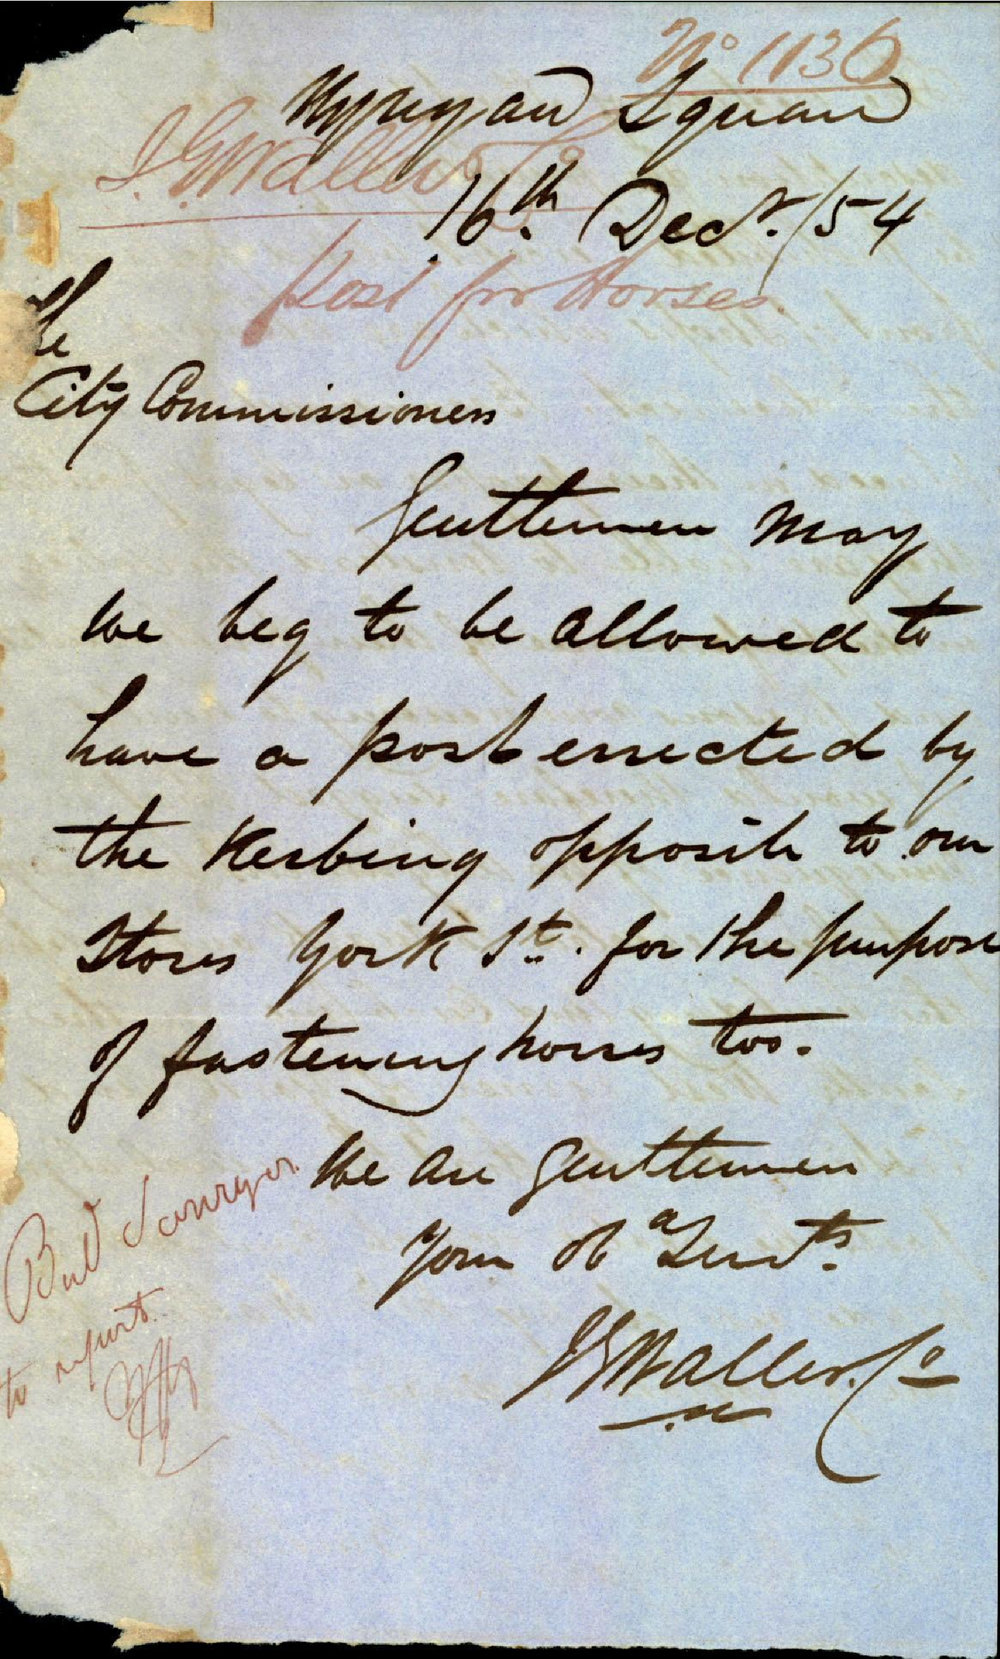 No 1136
Wynyard Square
J. G. Waller Co
16th. Decr. /54
Post for Horses
The
City Commissioners
Gentlemen May
we beg to be allowed to
have a post errected by
the Kerbing opposite to our
Stores York St. for the purpose
of fastening horses too.
We are Gentlemen
Your Ob a Servts.
J G Waller Co
City Surveyor
to report.